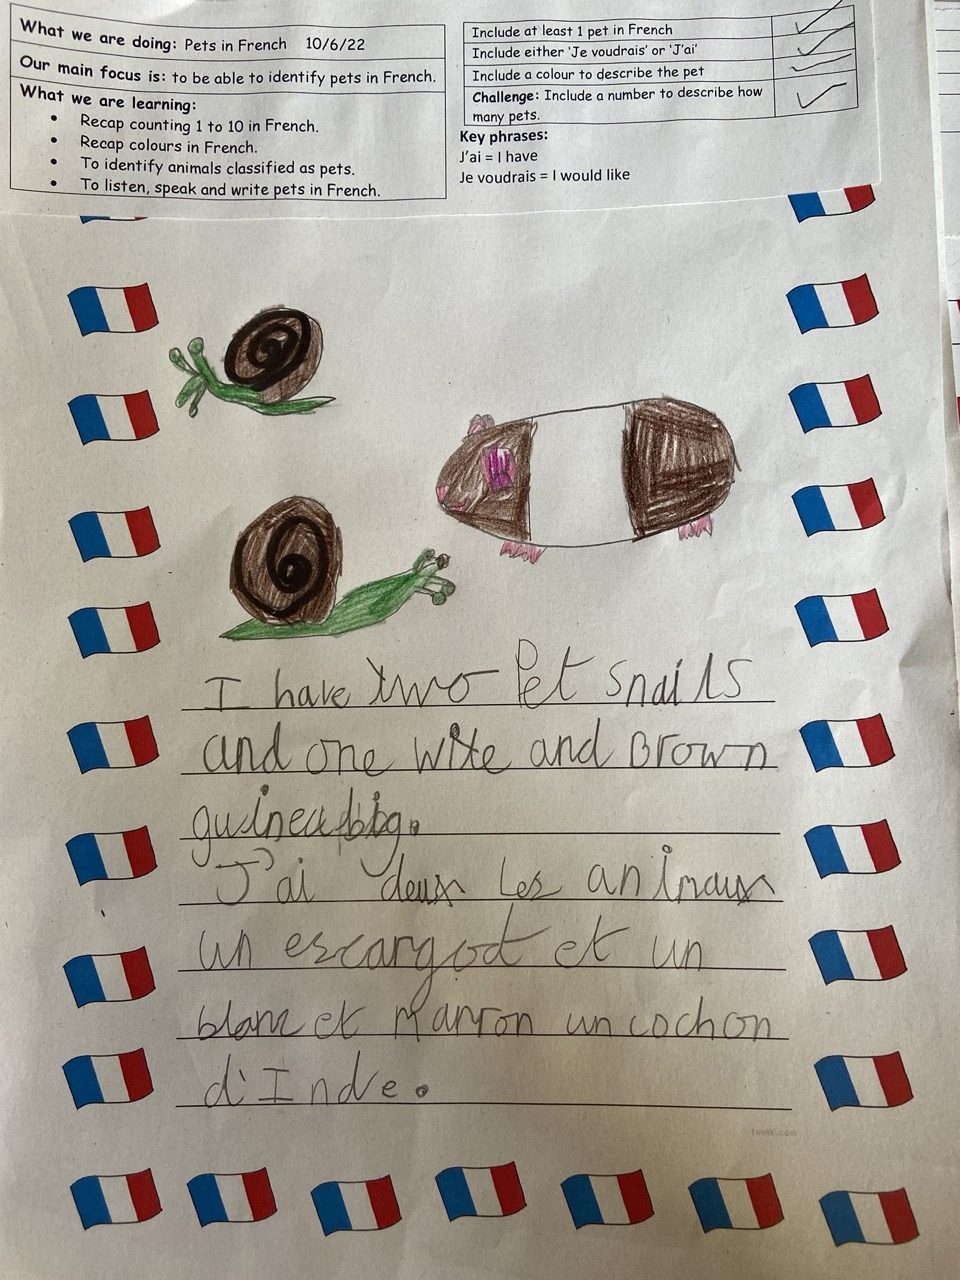 What we are doing: Pets in French 10/6/22
Our main focus is: to be able to identify pets in French.
What we are learning:
• Recap counting 1 to 10 in French.
• Recap colours in French.
• To identify animals classified as pets.
• To listen, speak and write pets in French.
Include at least 1 pet in French
Include either ‘Je voudrais’ or ‘J’ai’
Include a colour to describe the pet
Challenge: Include a number to describe how
many pets.
Key phrases:
J’ai = I have
Je voudrais = I would like
I have two Pet snails
and one wite and Brown
guinea big.
J'ai deux les animaux
un escargot et un
blanc et Marron un cochon
d'Inde.
twinkl.com